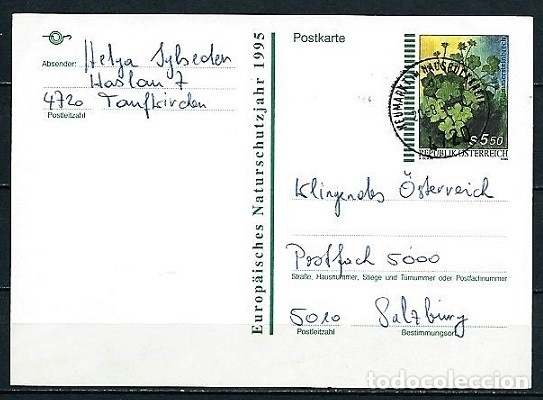 Absender: Helga Sylseden
Haslau 7
4720 Taufkirchen
Postleitzahl
Europäisches Naturschutzjahr 1995
Postkarte
NEUMARKT IM HAUSRUCKKREIS
4720
S 5.50
REPUBLIK ÖSTERREICH
Klingendes Österreich
Postfach 5000
Straße, Hausnummer, Stiege und Türnummer oder Postfachnummer
5010 Salzburg
Postleitzahl Bestimmungsort
todocoleccion.net